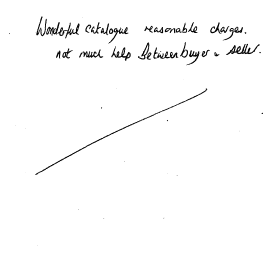 Wonderful catalogue reasonable charges.
not much help Between buyer & seller.